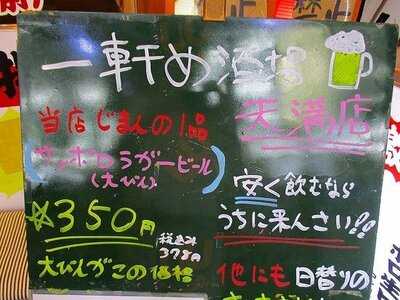 一軒め酒場
天満店
当店じまんの1品
サッポロラガービール
(大びん)
☆350円
税込み
378円
大びんがこの価格
安く飲むなら
うちに来んさい!!
他にも日替りの